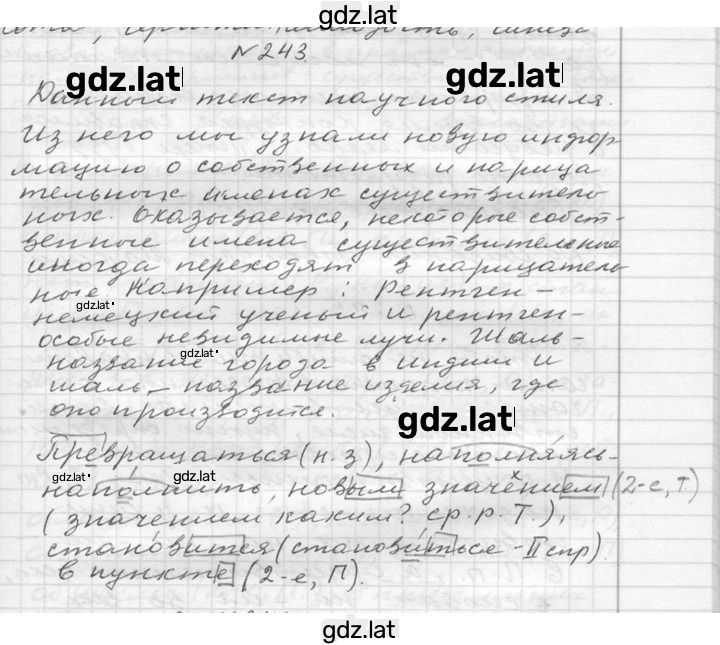 gdz.lat
№243
gdz.lat gdz.lat
Данный текст научного стиля.
Из него мы узнали новую инфор
мацию о собственных и нарица
тельных именах существитель
ных. Оказывается, некоторые собст-
венные имена существительные
иногда переходят в нарицатель
ные Например: Рентген-
gdz.lat
немецкий ученый и рентген-
особые невидимые лучи. Шаль-
gdz.lat
название города в Индии и
шаль - название изделия, где
оно производится.
gdz.lat
Превращаться (н.з), наполняясь-
gdz.lat gdz.lat
наполнить, новым значением (2-е, Т)
(значением каким? ср.р. Т.),
становится (становиться - II спр)
в пункте (2-е, П).
gdz.lat